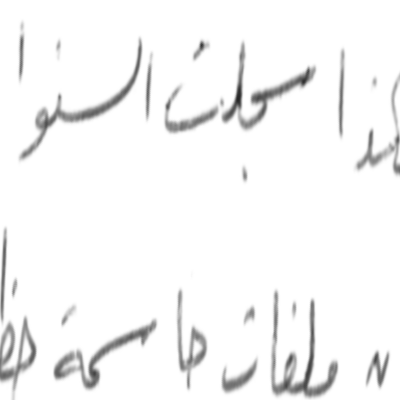 هكذا سجلت السنوا
ملفات حاسمة